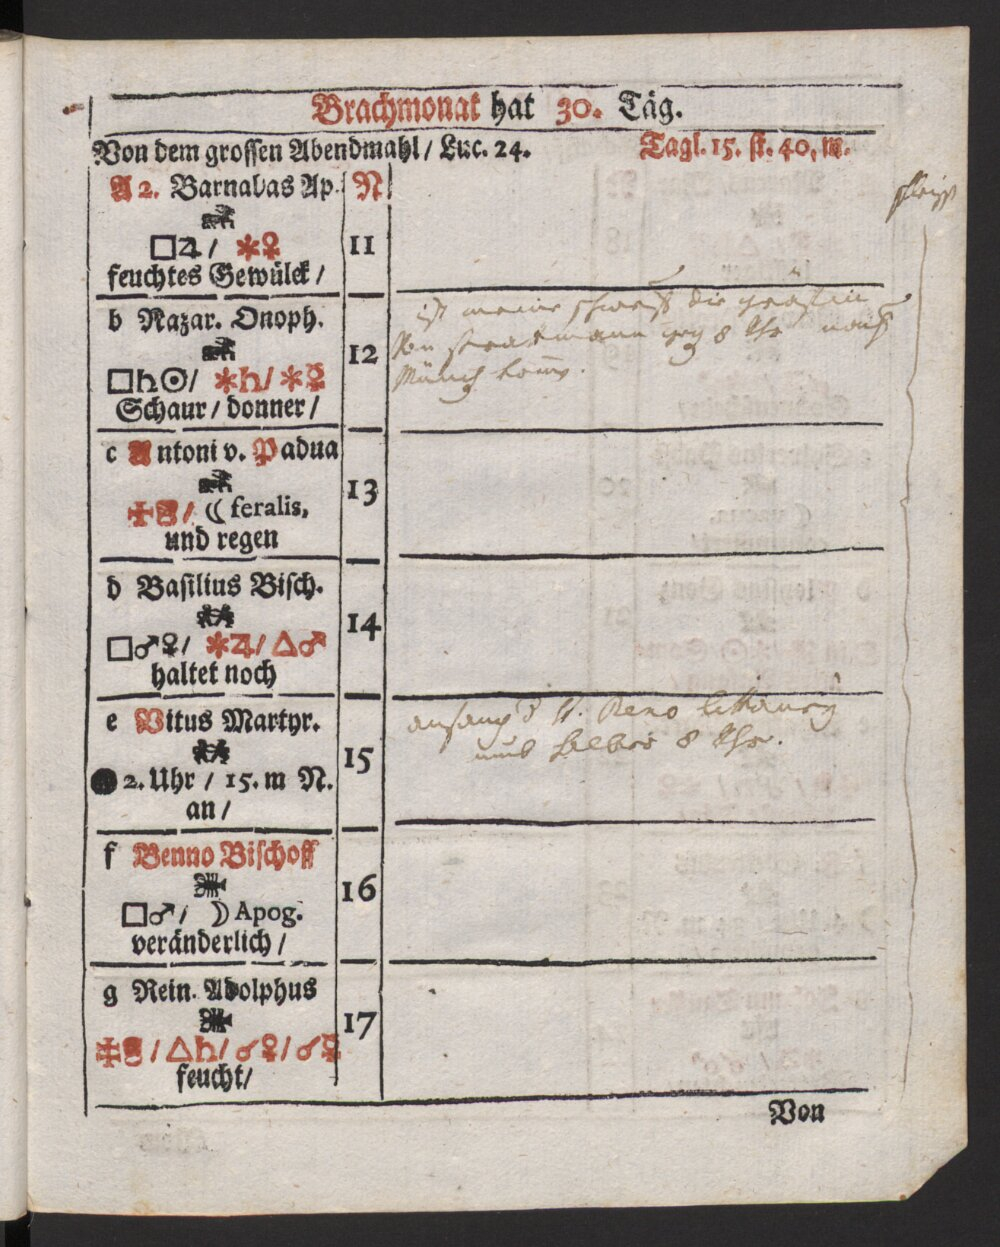 Brachmonat hat 30. Täg.
Von dem grossen Abendmahl / Luc. 24. Tagl. 15. st. 40, m.
A 2. Barnabas Ap. N
□♃ / ✶♀ 11
feuchtes Gewülck /
b Nazar. Onoph.
ist meine die
8 Uhr nach
12
□♄☉ / ✶♄ / ✶☿
Münch
Schaur / donner /
c Antoni v. Padua
13
☾ feralis,
und regen
d Basilius Bisch.
14
□♂♀ / ✶♃ / △♂
haltet noch
e Vitus Martyr.
15
8 Uhr.
● 2. Uhr / 15. m N.
an /
f Benno Bischoff
16
□♂ / ☽ Apog.
veränderlich /
g Rein. Adolphus
17
/ △♄ / ☌♀ / ☌☿
feucht /
Von